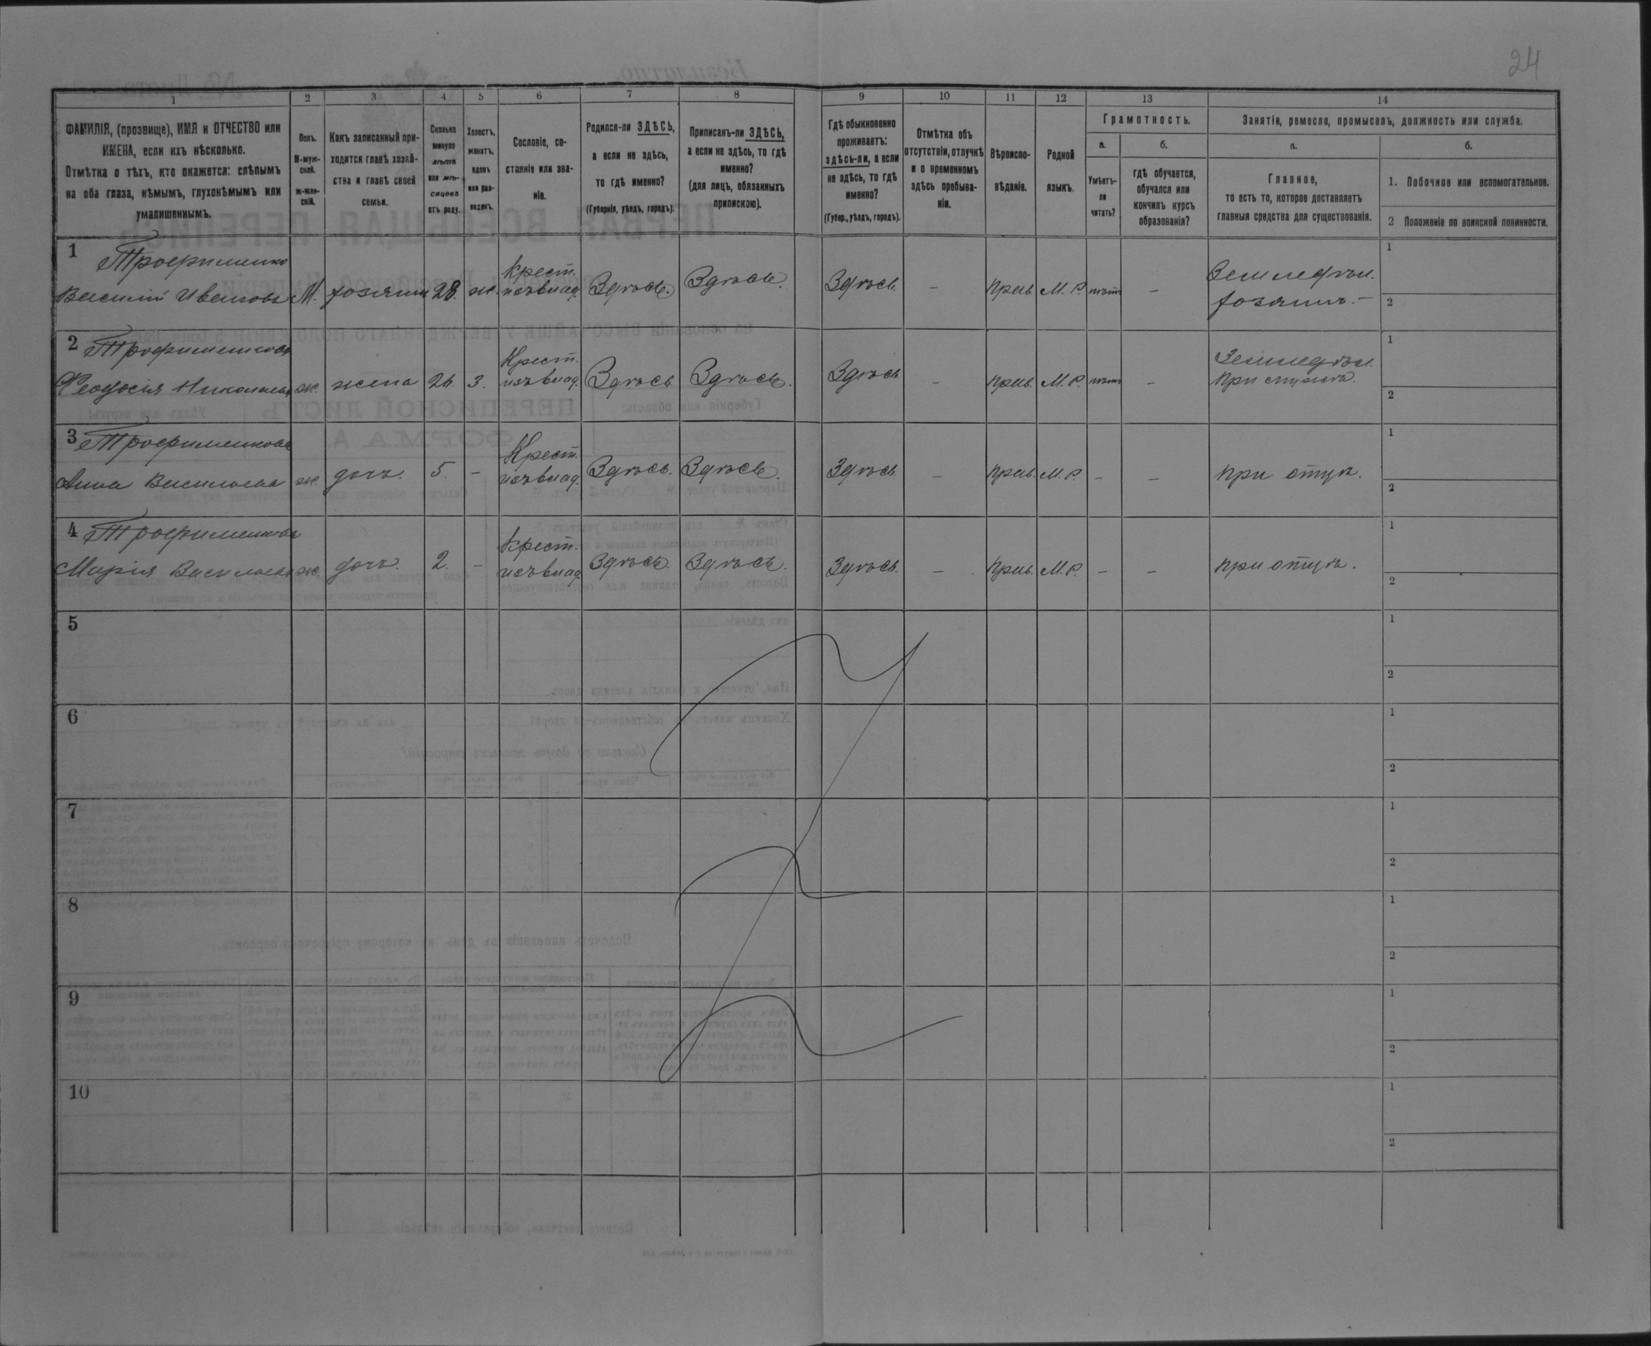 24
1 2 3 4 5 6 7 8 9 10 11 12 13 14
ФАМИЛІЯ, (прозвище), ИМЯ и ОТЧЕСТВО или
ИМЕНА, если ихъ нѣсколько.
Отмѣтка о тѣхъ, кто окажется: слѣпымъ
на оба глаза, нѣмымъ, глухонѣмымъ или
умалишеннымъ.
Полъ.
М-муж-
ской.
ж-жен-
скій.
Какъ записанный при-
ходится главѣ хозяй-
ства и главѣ своей
семьи.
Сколько
минуло
лѣтъ
или мѣ-
сяцевъ
отъ роду.
Холостъ,
женатъ,
вдовъ
или раз-
веденъ.
Сословіе, со-
стояніе или зва-
ніе.
Родился-ли ЗДѢСЬ,
а если не здѣсь,
то гдѣ именно?
(Губернія, уѣздъ, городъ).
Приписанъ-ли ЗДѢСЬ,
а если не здѣсь, то гдѣ
именно?
(для лицъ, обязанныхъ
припискою).
Гдѣ обыкновенно
проживаетъ:
здѣсь-ли, а если
не здѣсь, то гдѣ
именно?
(Губер., уѣздъ, городъ).
Отмѣтка объ
отсутствіи, отлучкѣ
и о временномъ
здѣсь пребыва-
ніи.
Вѣроиспо-
вѣданіе.
Родной
языкъ.
Грамотность.
а.
Умѣетъ-
ли
читать?
б.
гдѣ обучается,
обучался или
кончилъ курсъ
образованія?
Занятія, ремесло, промыселъ, должность или служба.
а.
Главное,
то есть то, которое доставляетъ
главныя средства для существованія.
б.
1. Побочное или вспомогательное.
2 Положеніе по воинской повинности.
1 Трофименко Крест. Земледѣл. 1
Василій Ивановъ М. хозяинъ 28. ж. изъ влад. Здѣсь. Здѣсь. Здѣсь. – прав. М. Р. нѣтъ – хозяинъ. – 2
2 Трофименкова Крест. Земледѣл. 1
Феодосія Николаева ж. жена 26. з. изъ влад. Здѣсь Здѣсь. Здѣсь – прав. М. Р. нѣтъ – При мужѣ. 2
3 Трофименкова Крест. 1
Анна Васильева ж. дочь. 5. – изъ влад. Здѣсь. Здѣсь. Здѣсь – прав. М. Р. – – при отцѣ. 2
4 Трофименкова Крест. 1
Марія Васильева ж. дочь. 2. – изъ влад. Здѣсь Здѣсь. Здѣсь. – прав. М. Р. – – при отцѣ. 2
5 1
2
6 1
2
7 1
2
8 1
2
9 1
2
10 1
2